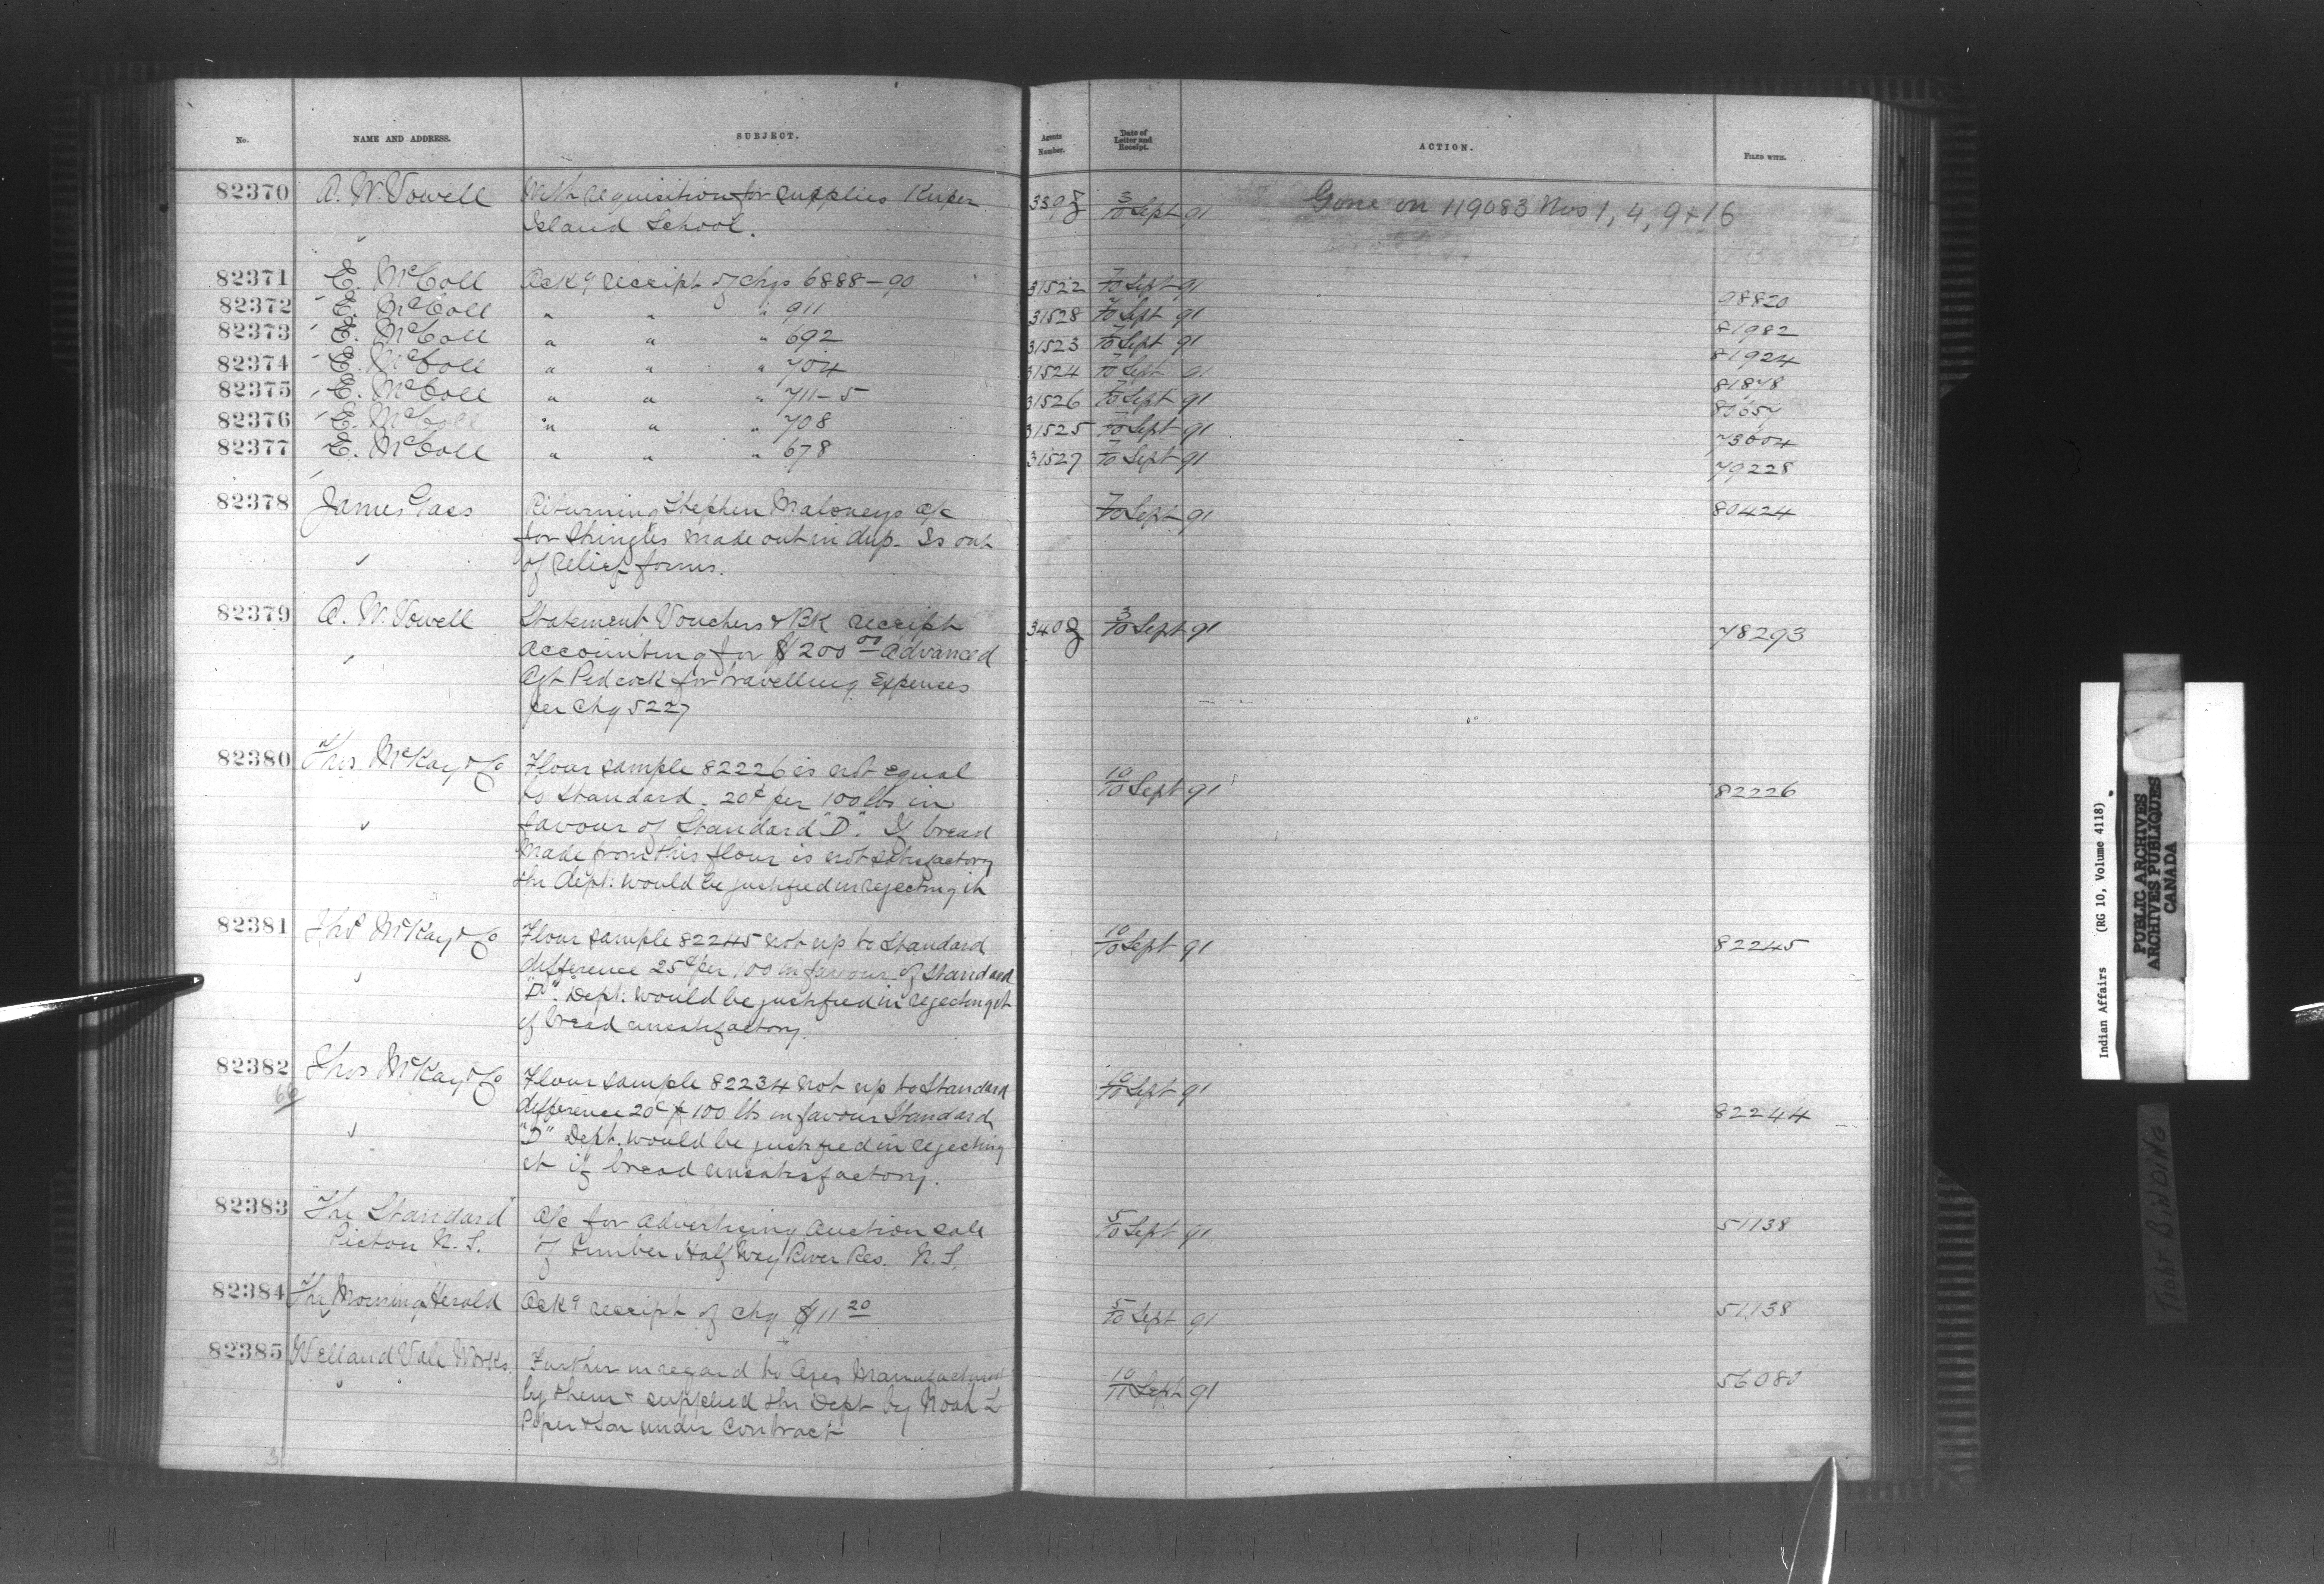 No. NAME AND ADDRESS. SUBJECT. Agents Number. Date of Letter and Receipt. ACTION. FILED WITH.
82370 A. W. Vowell With requisition for supplies Kuper 3/10 Sept 91 Gone on 119083 Nos 1, 4, 9 & 16
Island School.
82371 E. McColl Ackg receipt of chqs 6888-90 31522 7/10 Sept 91 98820
82372 E. McColl " " " 911 31528 7/10 Sept 91 81982
82373 E. McColl " " " 692 31523 7/10 Sept 91 81924
82374 E. McColl " " " 704 31524 7/10 Sept 91 81878
82375 E. McColl " " " 711-5 31526 7/10 Sept 91
82376 E. McColl " " " 708 31525 7/10 Sept 91 73004
82377 E. McColl " " " 678 31527 7/10 Sept 91 79228
82378 James Gass Returning Stephen Maloneys a/c 7/10 Sept 91 80424
for Shingles made out in dup. Is out
of relief forms.
82379 A. W. Vowell Statement Vouchers & Bk receipt 3/10 Sept 91 78293
accounting for $200 00 advanced
Agt Pidcock for travelling Expenses
per chq 5227
82380 Thos McKay & Co Flour sample 82226 is not equal 10/10 Sept 91 82226
to Standard. 20¢ per 100 lbs in
favour of Standard "D". If bread
made from this flour is not satisfactory
the Dept: would be justified in rejecting it
82381 Thos McKay & Co Flour sample 82245 not up to Standard 10/10 Sept 91 82245
difference 25¢ per 100 in favour of Standard
"D". Dept: would be justified in rejecting it
if bread unsatisfactory.
82382 Thos McKay & Co Flour sample 82234 not up to Standard 10/10 Sept 91
difference 20c p 100 lbs in favour Standard 82244
"D" Dept. would be justified in rejecting
it if bread unsatisfactory.
82383 "The Standard" A/c for advertising auction sale 5/10 Sept 91 51138
Pictou N. S. of Timber Half Way River Res. N. S.
82384 The Morning Herald Ackg receipt of chq $11 20 5/10 Sept 91 51138
82385 Welland Vale Works Further in regard to Axes Manufactured 10/11 Sept 91 56080
by them & supplied the Dept by Noah L
Piper & Son under Contract
Indian Affairs (RG 10, Volume 4118)
PUBLIC ARCHIVES
ARCHIVES PUBLIQUES
CANADA
TIGHT BINDING